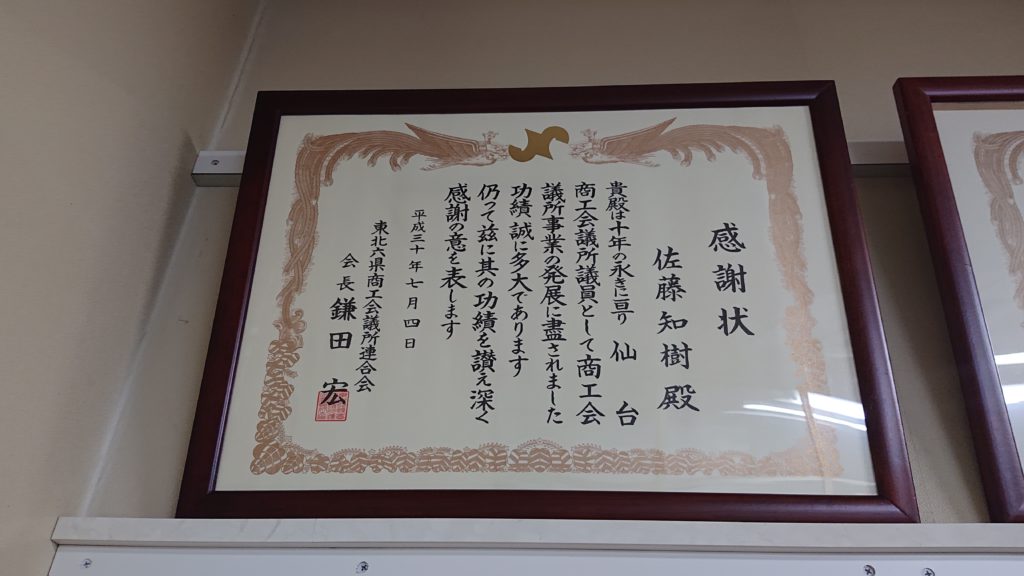 感謝状
佐藤知樹殿
貴殿は十年の永きに亘り仙台
商工会議所議員として商工会
議所事業の発展に盡されました
功績誠に多大であります
仍って茲に其の功績を讃え深く
感謝の意を表します
平成三十年七月四日
東北六県商工会議所連合会
会長鎌田宏